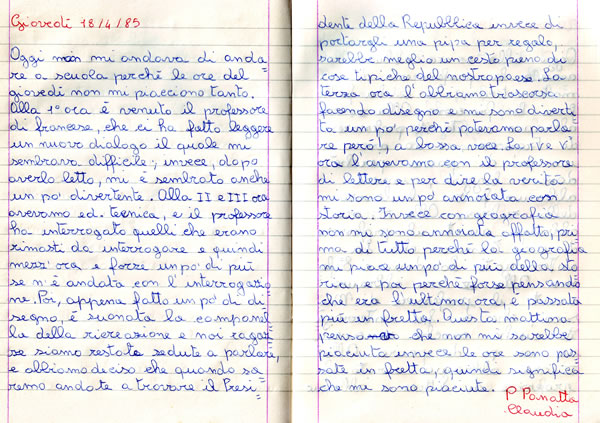 Giovedì 18/4/85
Oggi non mi andava di anda=
re a scuola perchè le ore del
giovedì non mi piacciono tanto.
Alla 1° ora è venuto il professore
di francese, che ci ha fatto leggere
un nuovo dialogo il quale mi
sembrava difficile; invece, dopo
averlo letto, mi è sembrato anche
un po' divertente. Alla II e III ora
avevamo ed. tecnica, e il professore
ha interrogato quelli che erano
rimasti da interrogare e quindi
mezz'ora e forze un po' di più
se n'è andata con l'interrogazio
ne. Poi, appena fatto un po' di di
segno, è suonata la campanel
la della ricreazione e noi ragaz=
ze siamo restate sedute a parlare,
e abbiamo deciso che quando sa=
remo andate a trovare il Presi=
dente della Repubblica invece di
portargli una pipa per regalo,
sarebbe meglio un cesto pieno di
cose tipiche del nostro paese. La
terza ora l'abbiamo trascorsa
facendo disegno e mi sono diverti=
ta un po', perchè potevamo parla
re però!, a bassa voce. La IV e V°
ora l'avevamo con il professore
di lettere e per dire la verità
mi sono un po' annoiata con
storia. Invece con geografia
non mi sono annoiata affatto, pri=
ma di tutto perchè la geografia
mi piace un po' di più della sto=
ria, e poi perchè forse pensando
che era l'ultima ora, è passata
più in fretta. Questa mattina
pensavo che non mi sarebbe
piaciuta invece le ore sono pas=
sate in fretta, quindi significa
che mi sono piaciute.
P Panatta
Claudia